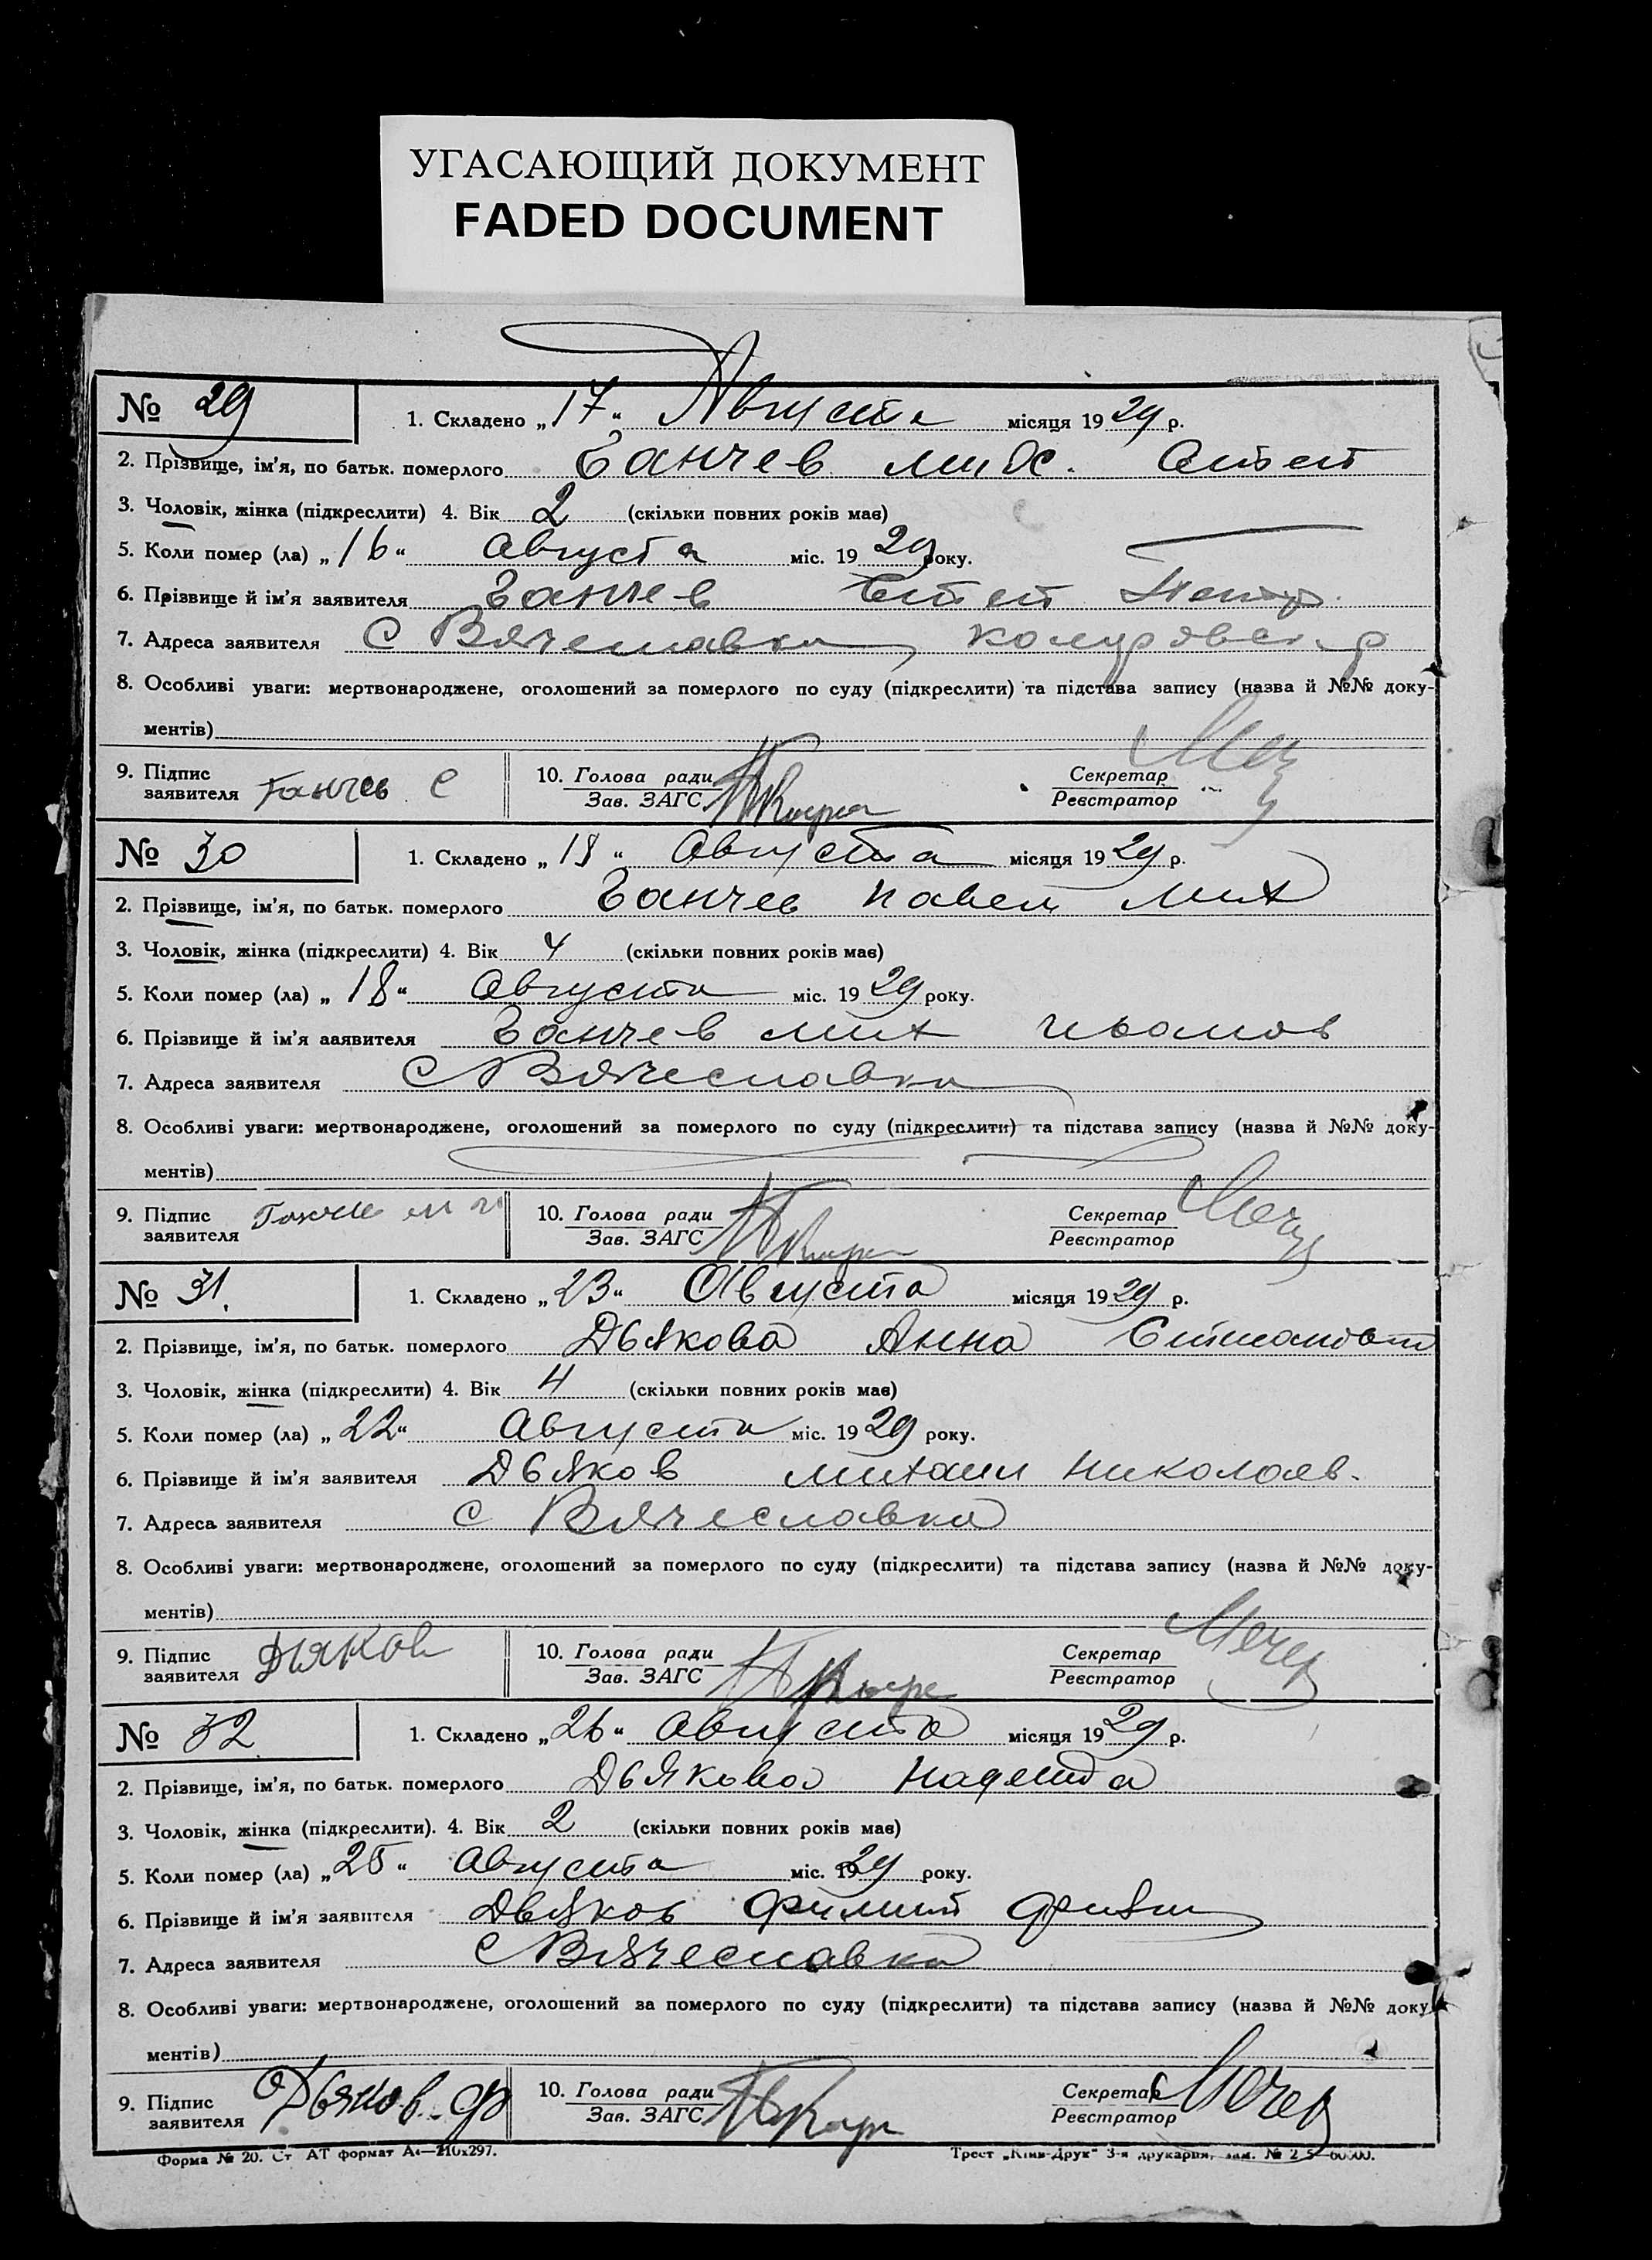 УГАСАЮЩИЙ ДОКУМЕНТ
FADED DOCUMENT
№ 29
1. Складено „17“ Августа місяця 1929 р.
2. Прізвище, ім’я, по батьк. померлого Ганчев Мих. Степ
3. Чоловік, жінка (підкреслити) 4. Вік 2 (скільки повних років має)
5. Коли помер (ла) „16“ Августа міс. 1929 року.
6. Прізвище й ім’я заявителя Ганчев Степ Петр.
7. Адреса заявителя С Вячеславка
8. Особливі уваги: мертвонароджене, оголошений за померлого по суду (підкреслити) та підстава запису (назва й №№ доку-
ментів)
9. Підпис заявителя Ганчев С
10. Голова ради
Зав. ЗАГС
Секретар
Реєстратор
№ 30
1. Складено „18“ Августа місяця 1929 р.
2. Прізвище, ім’я, по батьк. померлого Ганчев Павел Мих
3. Чоловік, жінка (підкреслити) 4. Вік 4 (скільки повних років має)
5. Коли помер (ла) „18“ Августа міс. 1929 року.
6. Прізвище й ім’я заявителя Ганчев Мих
7. Адреса заявителя С Вячеславка
8. Особливі уваги: мертвонароджене, оголошений за померлого по суду (підкреслити) та підстава запису (назва й №№ доку-
ментів)
9. Підпис заявителя
10. Голова ради
Зав. ЗАГС
Секретар
Реєстратор
№ 31.
1. Складено „23“ Августа місяця 1929 р.
2. Прізвище, ім’я, по батьк. померлого Дьякова Анна
3. Чоловік, жінка (підкреслити) 4. Вік 4 (скільки повних років має)
5. Коли помер (ла) „22“ Августа міс. 1929 року.
6. Прізвище й ім’я заявителя Дьяков Михаил Николаев.
7. Адреса заявителя с Вячеславка
8. Особливі уваги: мертвонароджене, оголошений за померлого по суду (підкреслити) та підстава запису (назва й №№ доку-
ментів)
9. Підпис заявителя Дьяков
10. Голова ради
Зав. ЗАГС
Секретар
Реєстратор
№ 32
1. Складено „26“ Августа місяця 1929 р.
2. Прізвище, ім’я, по батьк. померлого Дьякова Надежда
3. Чоловік, жінка (підкреслити). 4. Вік 2 (скільки повних років має)
5. Коли помер (ла) „25“ Августа міс. 1929 року.
6. Прізвище й ім’я заявителя Дьяков Филип
7. Адреса заявителя С Вячеславка
8. Особливі уваги: мертвонароджене, оголошений за померлого по суду (підкреслити) та підстава запису (назва й №№ доку-
ментів)
9. Підпис заявителя Дьяков Ф
10. Голова ради
Зав. ЗАГС
Секретар
Реєстратор
Форма № 20. Ст АТ формат А4—210х297.
Трест „Київ-Друк“ 3-я друкарня, зам. №